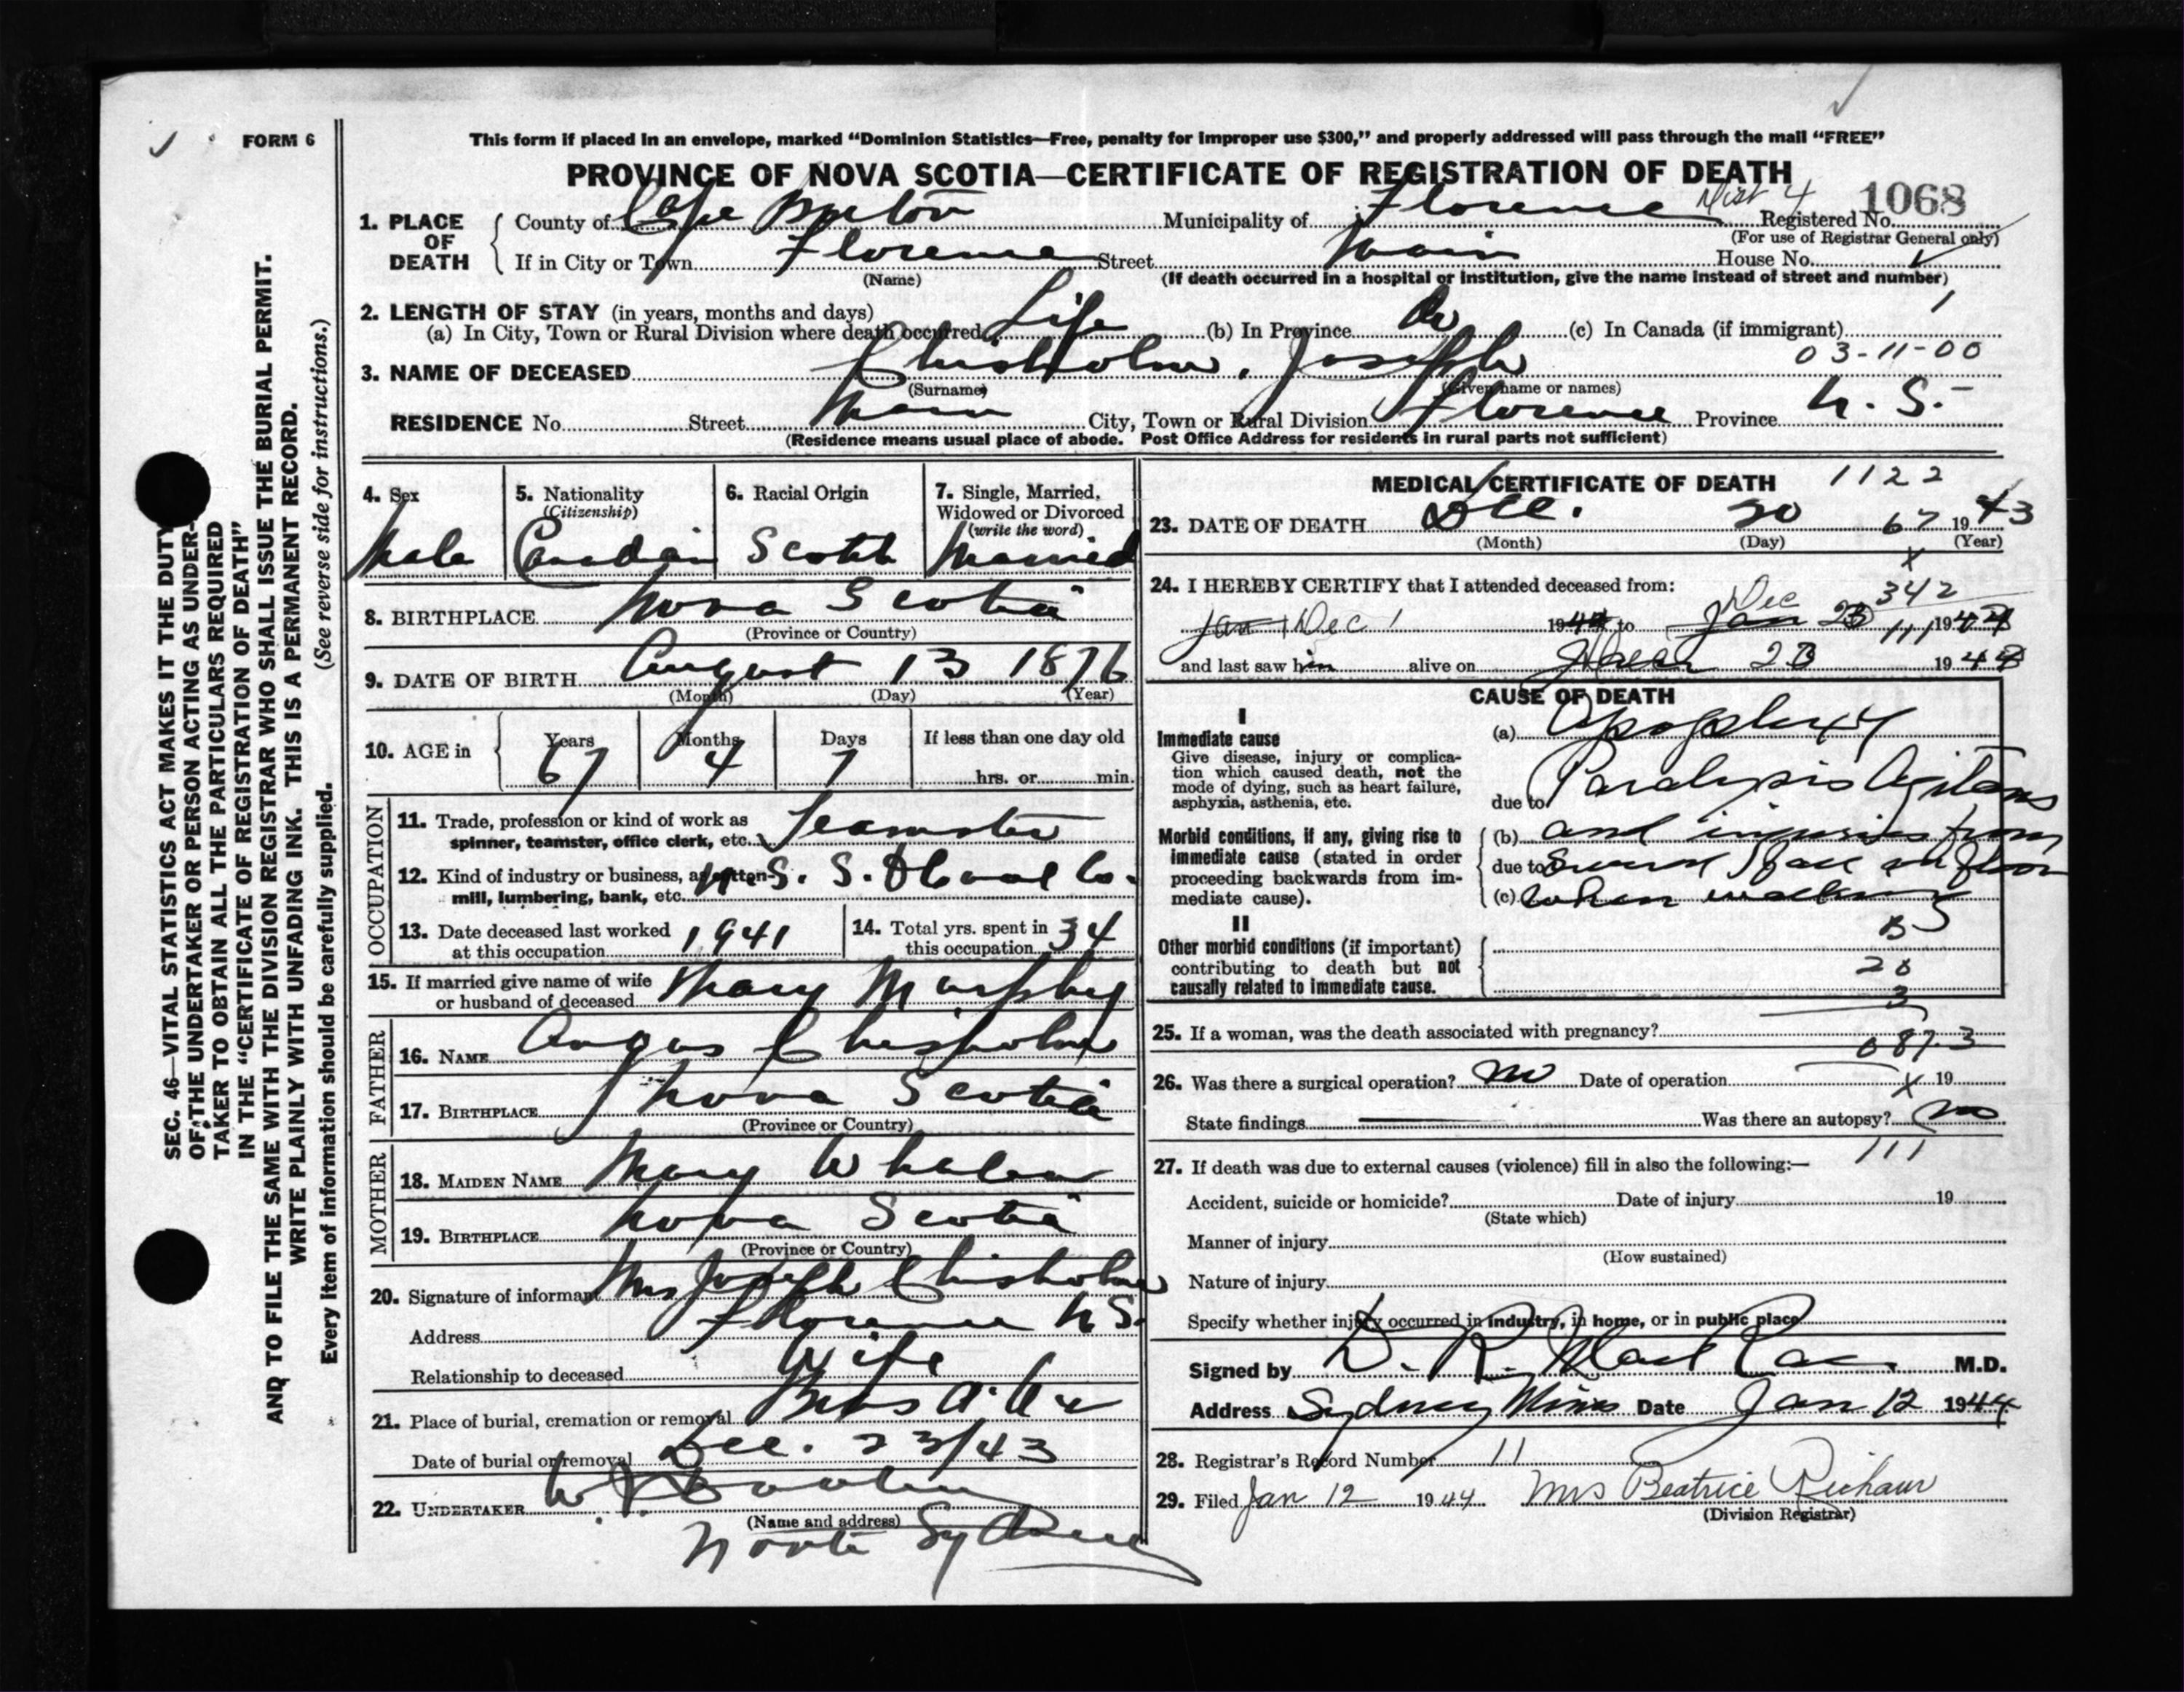 FORM 6
This form if placed in an envelope, marked “Dominion Statistics—Free, penalty for improper use $300,” and properly addressed will pass through the mail “FREE”
PROVINCE OF NOVA SCOTIA—CERTIFICATE OF REGISTRATION OF DEATH
1. PLACE OF DEATH
County of Cape Breton Municipality of Florence Dist 4 Registered No. 1068
(For use of Registrar General only)
If in City or Town Florence Street Main House No.
(Name) (If death occurred in a hospital or institution, give the name instead of street and number)
2. LENGTH OF STAY (in years, months and days)
(a) In City, Town or Rural Division where death occurred Life (b) In Province do (c) In Canada (if immigrant)
03-11-00
3. NAME OF DECEASED Chisholm, Joseph
(Surname) (Given name or names)
RESIDENCE No. Street Main City, Town or Rural Division Florence Province N. S.
(Residence means usual place of abode. Post Office Address for residents in rural parts not sufficient)
4. Sex Male
5. Nationality (Citizenship) Canadian
6. Racial Origin Scotch
7. Single, Married, Widowed or Divorced (write the word) Married
8. BIRTHPLACE Nova Scotia
(Province or Country)
9. DATE OF BIRTH August 13 1876
(Month) (Day) (Year)
10. AGE in Years 67 Months 4 Days 7 If less than one day old
hrs. or min.
OCCUPATION
11. Trade, profession or kind of work as
spinner, teamster, office clerk, etc. Teamster
12. Kind of industry or business, as cotton-
mill, lumbering, bank, etc. N. S. S. & Coal Co.
13. Date deceased last worked
at this occupation 1941
14. Total yrs. spent in
this occupation 34
15. If married give name of wife
or husband of deceased Mary Murphy
FATHER
16. NAME Angus Chisholm
17. BIRTHPLACE Nova Scotia
(Province or Country)
MOTHER
18. MAIDEN NAME Mary Whalen
19. BIRTHPLACE Nova Scotia
(Province or Country)
20. Signature of informant Mrs Joseph Chisholm
Address Florence N S.
Relationship to deceased Wife
21. Place of burial, cremation or removal
Date of burial or removal Dec. 23/43
22. UNDERTAKER W.
(Name and address)
North Sydney
MEDICAL CERTIFICATE OF DEATH 1122
23. DATE OF DEATH Dec. 20 67 1943
(Month) (Day) (Year)
x
24. I HEREBY CERTIFY that I attended deceased from: 342
Jan 1 Dec 1 194 to Jan Dec 111 194
and last saw him alive on 194
CAUSE OF DEATH
I
Immediate cause
Give disease, injury or complica-
tion which caused death, not the
mode of dying, such as heart failure,
asphyxia, asthenia, etc.
(a) Apoplexy
due to Paralysis Agitans
Morbid conditions, if any, giving rise to
immediate cause (stated in order
proceeding backwards from im-
mediate cause).
(b) and injuries from
due to fall on floor
(c) when walking
II
Other morbid conditions (if important)
contributing to death but not
causally related to immediate cause.
20
3
25. If a woman, was the death associated with pregnancy?
087.3
26. Was there a surgical operation? no Date of operation x 19
State findings Was there an autopsy? no
27. If death was due to external causes (violence) fill in also the following:— 111
Accident, suicide or homicide? Date of injury 19
(State which)
Manner of injury
(How sustained)
Nature of injury
Specify whether injury occurred in industry, in home, or in public place
Signed by D. R. MacRae M.D.
Address Sydney Mines Date Jan 12 1944
28. Registrar's Record Number 11
29. Filed Jan 12 1944 Mrs Beatrice
(Division Registrar)
SEC. 46—VITAL STATISTICS ACT MAKES IT THE DUTY
OF THE UNDERTAKER OR PERSON ACTING AS UNDER-
TAKER TO OBTAIN ALL THE PARTICULARS REQUIRED
IN THE “CERTIFICATE OF REGISTRATION OF DEATH”
AND TO FILE THE SAME WITH THE DIVISION REGISTRAR WHO SHALL ISSUE THE BURIAL PERMIT.
WRITE PLAINLY WITH UNFADING INK. THIS IS A PERMANENT RECORD.
Every item of information should be carefully supplied. (See reverse side for instructions.)